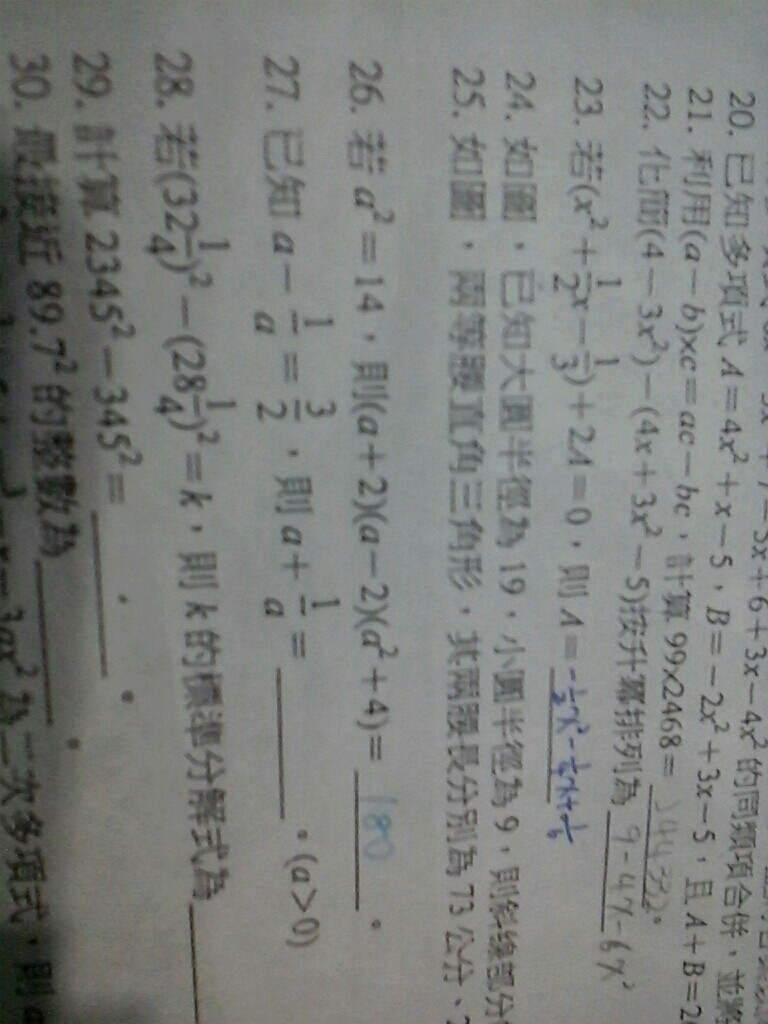 3x+7-5x+6+3x-4x²的同類項合併,並將
20. 已知多項式 A=4x²+x-5,B=-2x²+3x-5,且A+B=2
21. 利用(a-b)xc=ac-bc,計算 99x2468= 244332。
22. 化簡(4-3x²)-(4x+3x²-5)按升冪排列為 9-4x-6x²
23. 若(x²+1/2x-1/3)+2A=0,則A= -1/2x²-1/4x+1/6
24. 如圖,已知大圓半徑為 19,小圓半徑為 9,則斜線部分
25. 如圖,兩等腰直角三角形,其兩腰長分別為 73 公分、2
26. 若 a²=14,則(a+2)(a-2)(a²+4)= 180 。
27. 已知 a-1/a=3/2,則 a+1/a= 。(a>0)
28. 若(32 1/4)²-(28 1/4)²=k,則 k 的標準分解式為
29. 計算 2345²-345²= 。
30. 最接近 89.7² 的整數為 。
3ax²為二次多項式,則